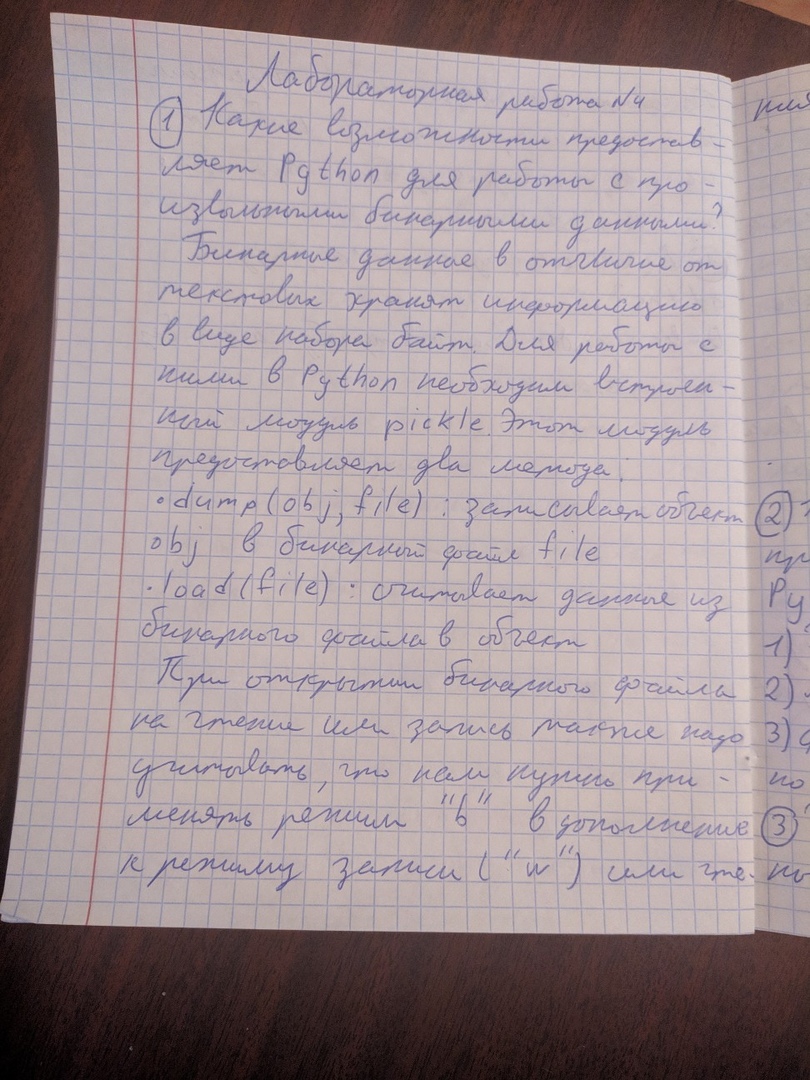 Лабораторная работа №4
① Какие возможности предостав-
ляет Python для работы с про-
извольными бинарными данными?
Бинарные данные в отличие от
текстовых хранят информацию
в виде набора байт. Для работы с
ними в Python необходим встроен-
ный модуль pickle. Этот модуль
предоставляет два метода:
• dump(obj, file) : записывает объект
obj в бинарный файл file
• load(file) : считывает данные из
бинарного файла в объект
При открытии бинарного файла
на чтение или запись также надо
учитывать, что нам нужно при-
менять режим "b" в дополнение
к режиму записи ("w") или чте-
②
пр
Py
1)
2)
3)
но
③